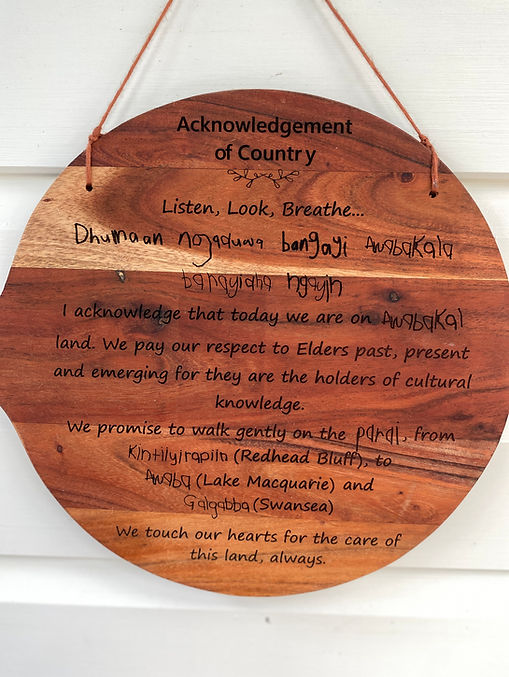 Acknowledgement
of Country
Listen, Look, Breathe...
Dhumaan ngaduwa bangayi Awabakala
barayiaba ngayin
I acknowledge that today we are on Awabakal
land. We pay our respect to Elders past, present
and emerging for they are the holders of cultural
knowledge.
We promise to walk gently on the parai, from
Kintilyirapiin (Redhead Bluff), to
Awaba (Lake Macquarie) and
Galgabba (Swansea)
We touch our hearts for the care of
this land, always.